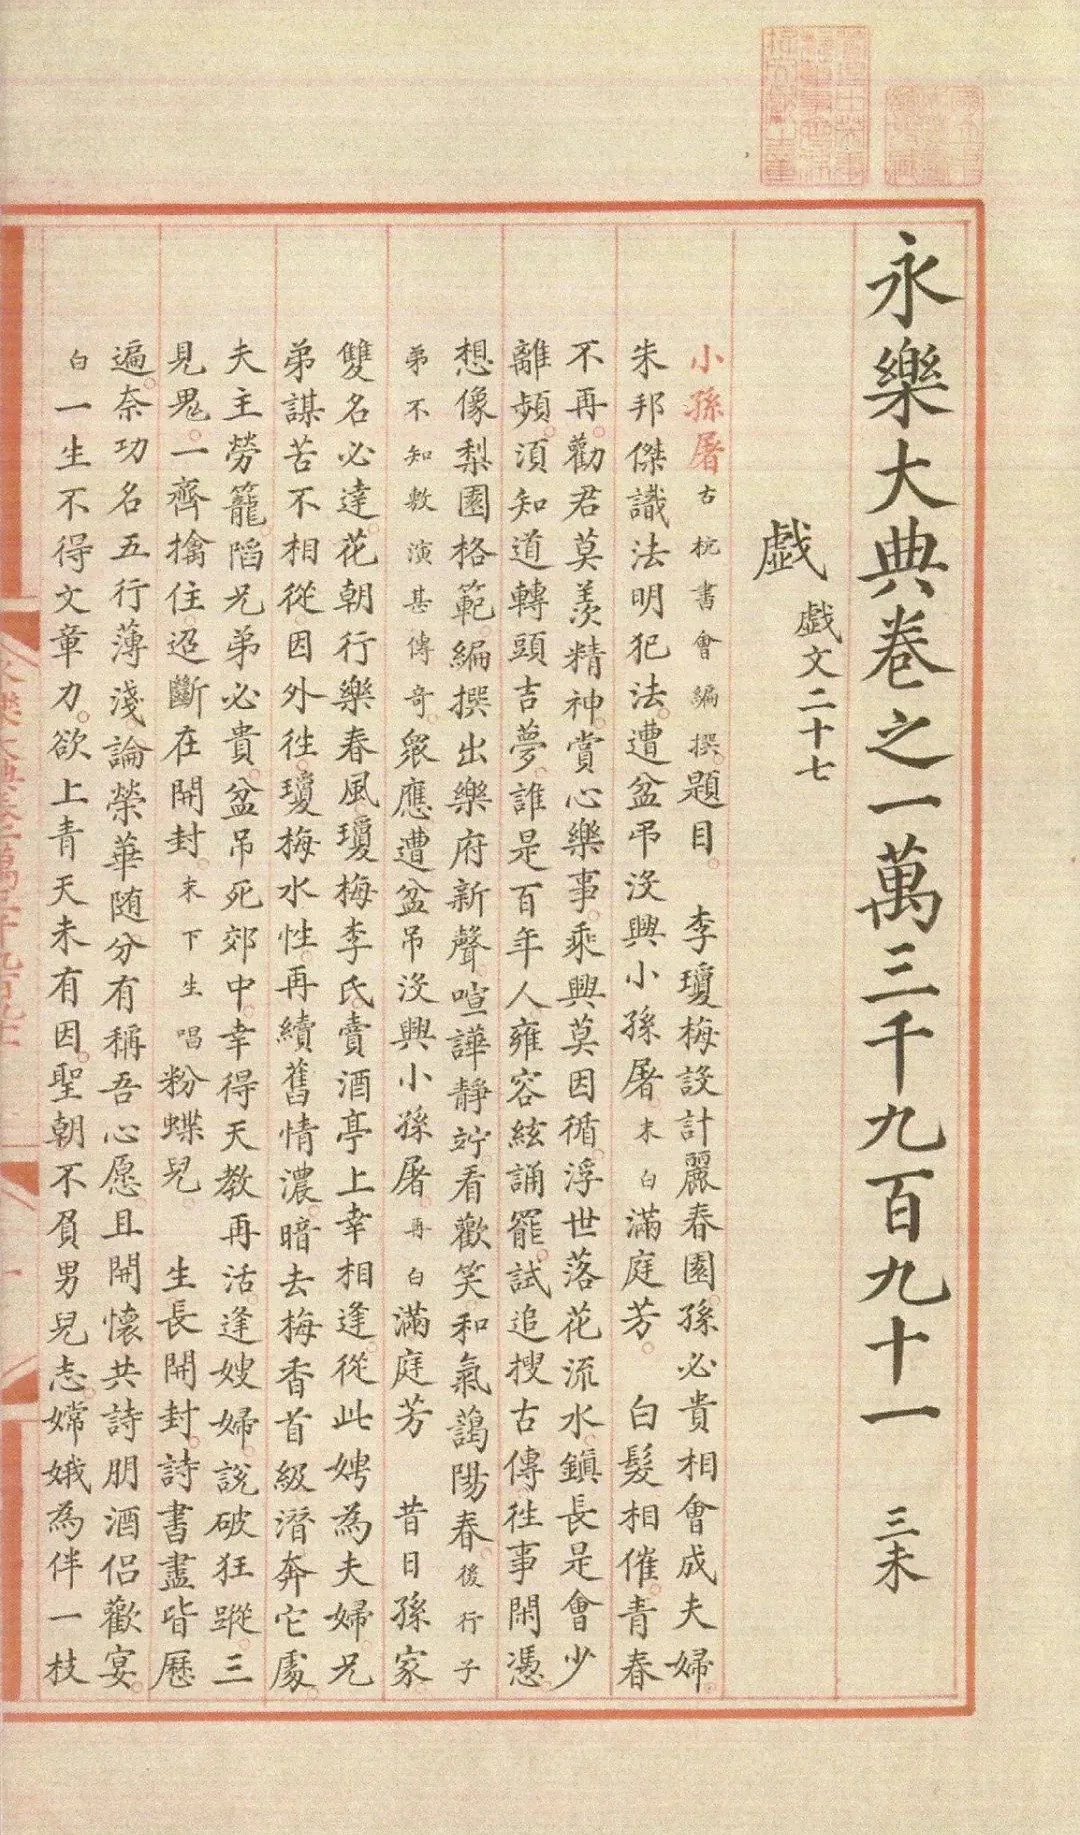 永樂大典卷之一萬三千九百九十一 三未
戯 戯文二十七
小孫屠 古杭書會編撰 題目 李瓊梅設計麗春園 孫必貴相會成夫婦
朱邦傑識法明犯法 遭盆弔沒興小孫屠 末白 滿庭芳 白髮相催 青春
不再 勸君莫羡精神 賞心樂事 乘興莫因循 浮世落花流水 鎮長是會少
離頻 須知道轉頭吉夢 誰是百年人 雍容絃誦罷 試追搜古傳 往事閑憑
想像梨園格範 編撰出樂府新聲 喧譁靜竚 看歡笑和氣藹陽春 後行子
弟不知敷演甚傳奇 衆應 遭盆吊沒興小孫屠 再白 滿庭芳 昔日孫家
雙名必達 花朝行樂春風 瓊梅李氏 賣酒亭上幸相逢 從此娉為夫婦 兄
弟謀苦不相從 因外徃 瓊梅水性 再續舊情濃 暗去梅香首級 潛奔它處
夫主勞籠 陷兄弟必貴 盆吊死郊中 幸得天教再活 逢嫂婦說破狂蹤 三
見鬼 一齊擒住 迢斷在開封 末下 生唱 粉蝶兒 生長開封 詩書盡皆歷
遍 奈功名五行薄淺 論榮華随分有稱吾心愿 且開懷共詩朋酒侣歡宴
白 一生不得文章力 欲上青天未有因 聖朝不負男兒志 嫦娥為伴一枝